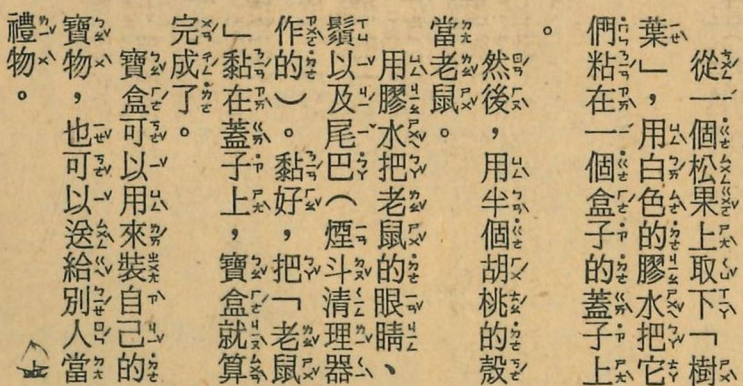 從一個松果上取下「樹
葉」，用白色的膠水把它
們粘在一個盒子的蓋子上
。
然後，用半個胡桃的殼
當老鼠。
用膠水把老鼠的眼睛、
鬚以及尾巴（煙斗清理器
作的）。黏好，把「老鼠
」黏在蓋子上，寶盒就算
完成了。
寶盒可以用來裝自己的
寶物，也可以送給別人當
禮物。